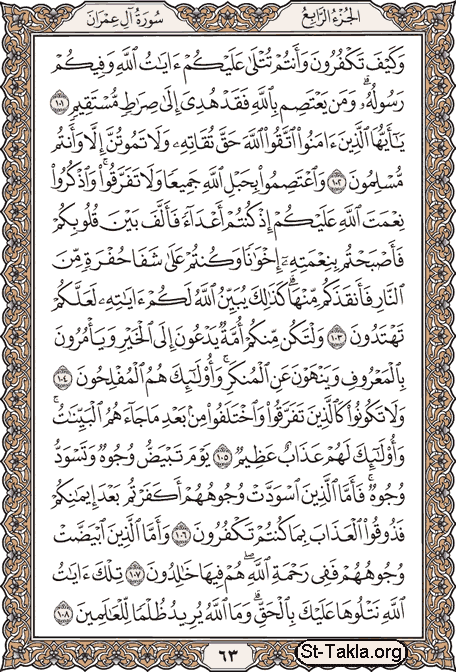 الجزء الرابع
سورة آل عمران
وَكَيْفَ تَكْفُرُونَ وَأَنتُمْ تُتْلَىٰ عَلَيْكُمْ ءَايَٰتُ ٱللَّهِ وَفِيكُمْ
رَسُولُهُۥ ۗ وَمَن يَعْتَصِم بِٱللَّهِ فَقَدْ هُدِىَ إِلَىٰ صِرَٰطٍ مُّسْتَقِيمٍ ١٠١
يَٰٓأَيُّهَا ٱلَّذِينَ ءَامَنُوا۟ ٱتَّقُوا۟ ٱللَّهَ حَقَّ تُقَاتِهِۦ وَلَا تَمُوتُنَّ إِلَّا وَأَنتُم
مُّسْلِمُونَ ١٠٢ وَٱعْتَصِمُوا۟ بِحَبْلِ ٱللَّهِ جَمِيعًا وَلَا تَفَرَّقُوا۟ ۚ وَٱذْكُرُوا۟
نِعْمَتَ ٱللَّهِ عَلَيْكُمْ إِذْ كُنتُمْ أَعْدَآءً فَأَلَّفَ بَيْنَ قُلُوبِكُمْ
فَأَصْبَحْتُم بِنِعْمَتِهِۦٓ إِخْوَٰنًا وَكُنتُمْ عَلَىٰ شَفَا حُفْرَةٍ مِّنَ
ٱلنَّارِ فَأَنقَذَكُم مِّنْهَا ۗ كَذَٰلِكَ يُبَيِّنُ ٱللَّهُ لَكُمْ ءَايَٰتِهِۦ لَعَلَّكُمْ
تَهْتَدُونَ ١٠٣ وَلْتَكُن مِّنكُمْ أُمَّةٌ يَدْعُونَ إِلَى ٱلْخَيْرِ وَيَأْمُرُونَ
بِٱلْمَعْرُوفِ وَيَنْهَوْنَ عَنِ ٱلْمُنكَرِ ۚ وَأُو۟لَٰٓئِكَ هُمُ ٱلْمُفْلِحُونَ ١٠٤
وَلَا تَكُونُوا۟ كَٱلَّذِينَ تَفَرَّقُوا۟ وَٱخْتَلَفُوا۟ مِنۢ بَعْدِ مَا جَآءَهُمُ ٱلْبَيِّنَٰتُ ۚ
وَأُو۟لَٰٓئِكَ لَهُمْ عَذَابٌ عَظِيمٌ ١٠٥ يَوْمَ تَبْيَضُّ وُجُوهٌ وَتَسْوَدُّ
وُجُوهٌ ۚ فَأَمَّا ٱلَّذِينَ ٱسْوَدَّتْ وُجُوهُهُمْ أَكَفَرْتُم بَعْدَ إِيمَٰنِكُمْ
فَذُوقُوا۟ ٱلْعَذَابَ بِمَا كُنتُمْ تَكْفُرُونَ ١٠٦ وَأَمَّا ٱلَّذِينَ ٱبْيَضَّتْ
وُجُوهُهُمْ فَفِى رَحْمَةِ ٱللَّهِ هُمْ فِيهَا خَٰلِدُونَ ١٠٧ تِلْكَ ءَايَٰتُ
ٱللَّهِ نَتْلُوهَا عَلَيْكَ بِٱلْحَقِّ ۗ وَمَا ٱللَّهُ يُرِيدُ ظُلْمًا لِّلْعَٰلَمِينَ ١٠٨
٦٣
St-Takla.org